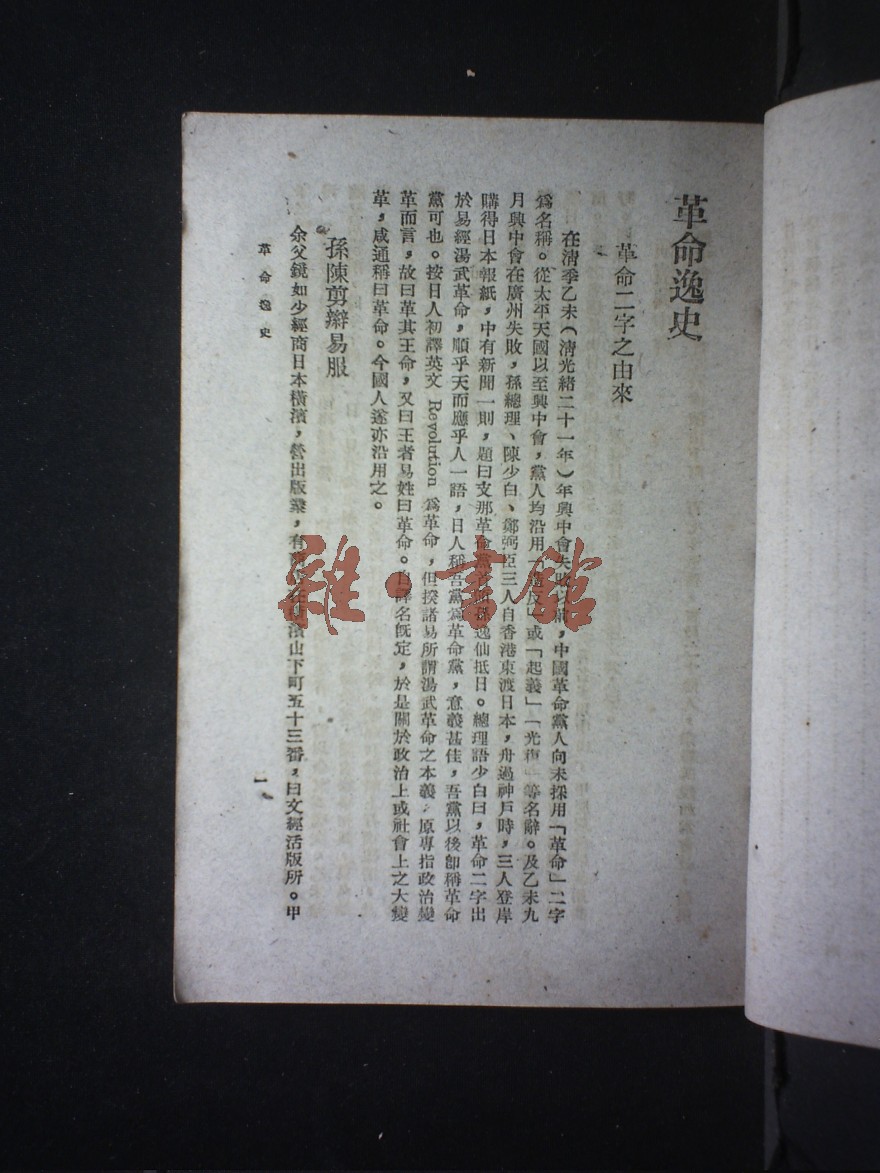 革命逸史
革命二字之由來
在清季乙未(清光緒二十一年)年興中會失敗以前,中國革命黨人向未採用「革命」二字
爲名稱。從太平天國以至興中會,黨人均沿用「造反」或「起義」「光復」等名辭。及乙未九
月興中會在廣州失敗,孫總理、陳少白、鄭弼臣三人自香港東渡日本,舟過神戶時,三人登岸
購得日本報紙,中有新聞一則,題曰支那革命黨首領孫逸仙抵日。總理語少白曰,革命二字出
於易經湯武革命,順乎天而應乎人一語,日人稱吾黨爲革命黨,意義甚佳,吾黨以後卽稱革命
黨可也。按日人初譯英文 Revolution 爲革命,但揆諸易所謂湯武革命之本義,原專指政治變
革而言,故曰革其王命,又曰王者易姓曰革命。自譯名旣定,於是關於政治上或社會上之大變
革,咸通稱曰革命。今國人遂亦沿用之。
孫陳剪辮易服
余父鏡如少經商日本橫濱,營出版業,有 濱山下町五十三番,曰文經活版所。甲
革命逸史
一
雜·書館